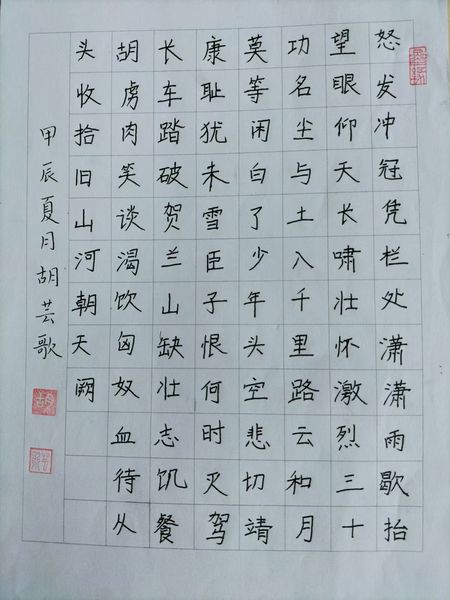 怒发冲冠凭栏处潇潇雨歇抬
望眼仰天长啸壮怀激烈三十
功名尘与土八千里路云和月
莫等闲白了少年头空悲切靖
康耻犹未雪臣子恨何时灭驾
长车踏破贺兰山缺壮志饥餐
胡虏肉笑谈渴饮匈奴血待从
头收拾旧山河朝天阙
甲辰夏月胡芸歌